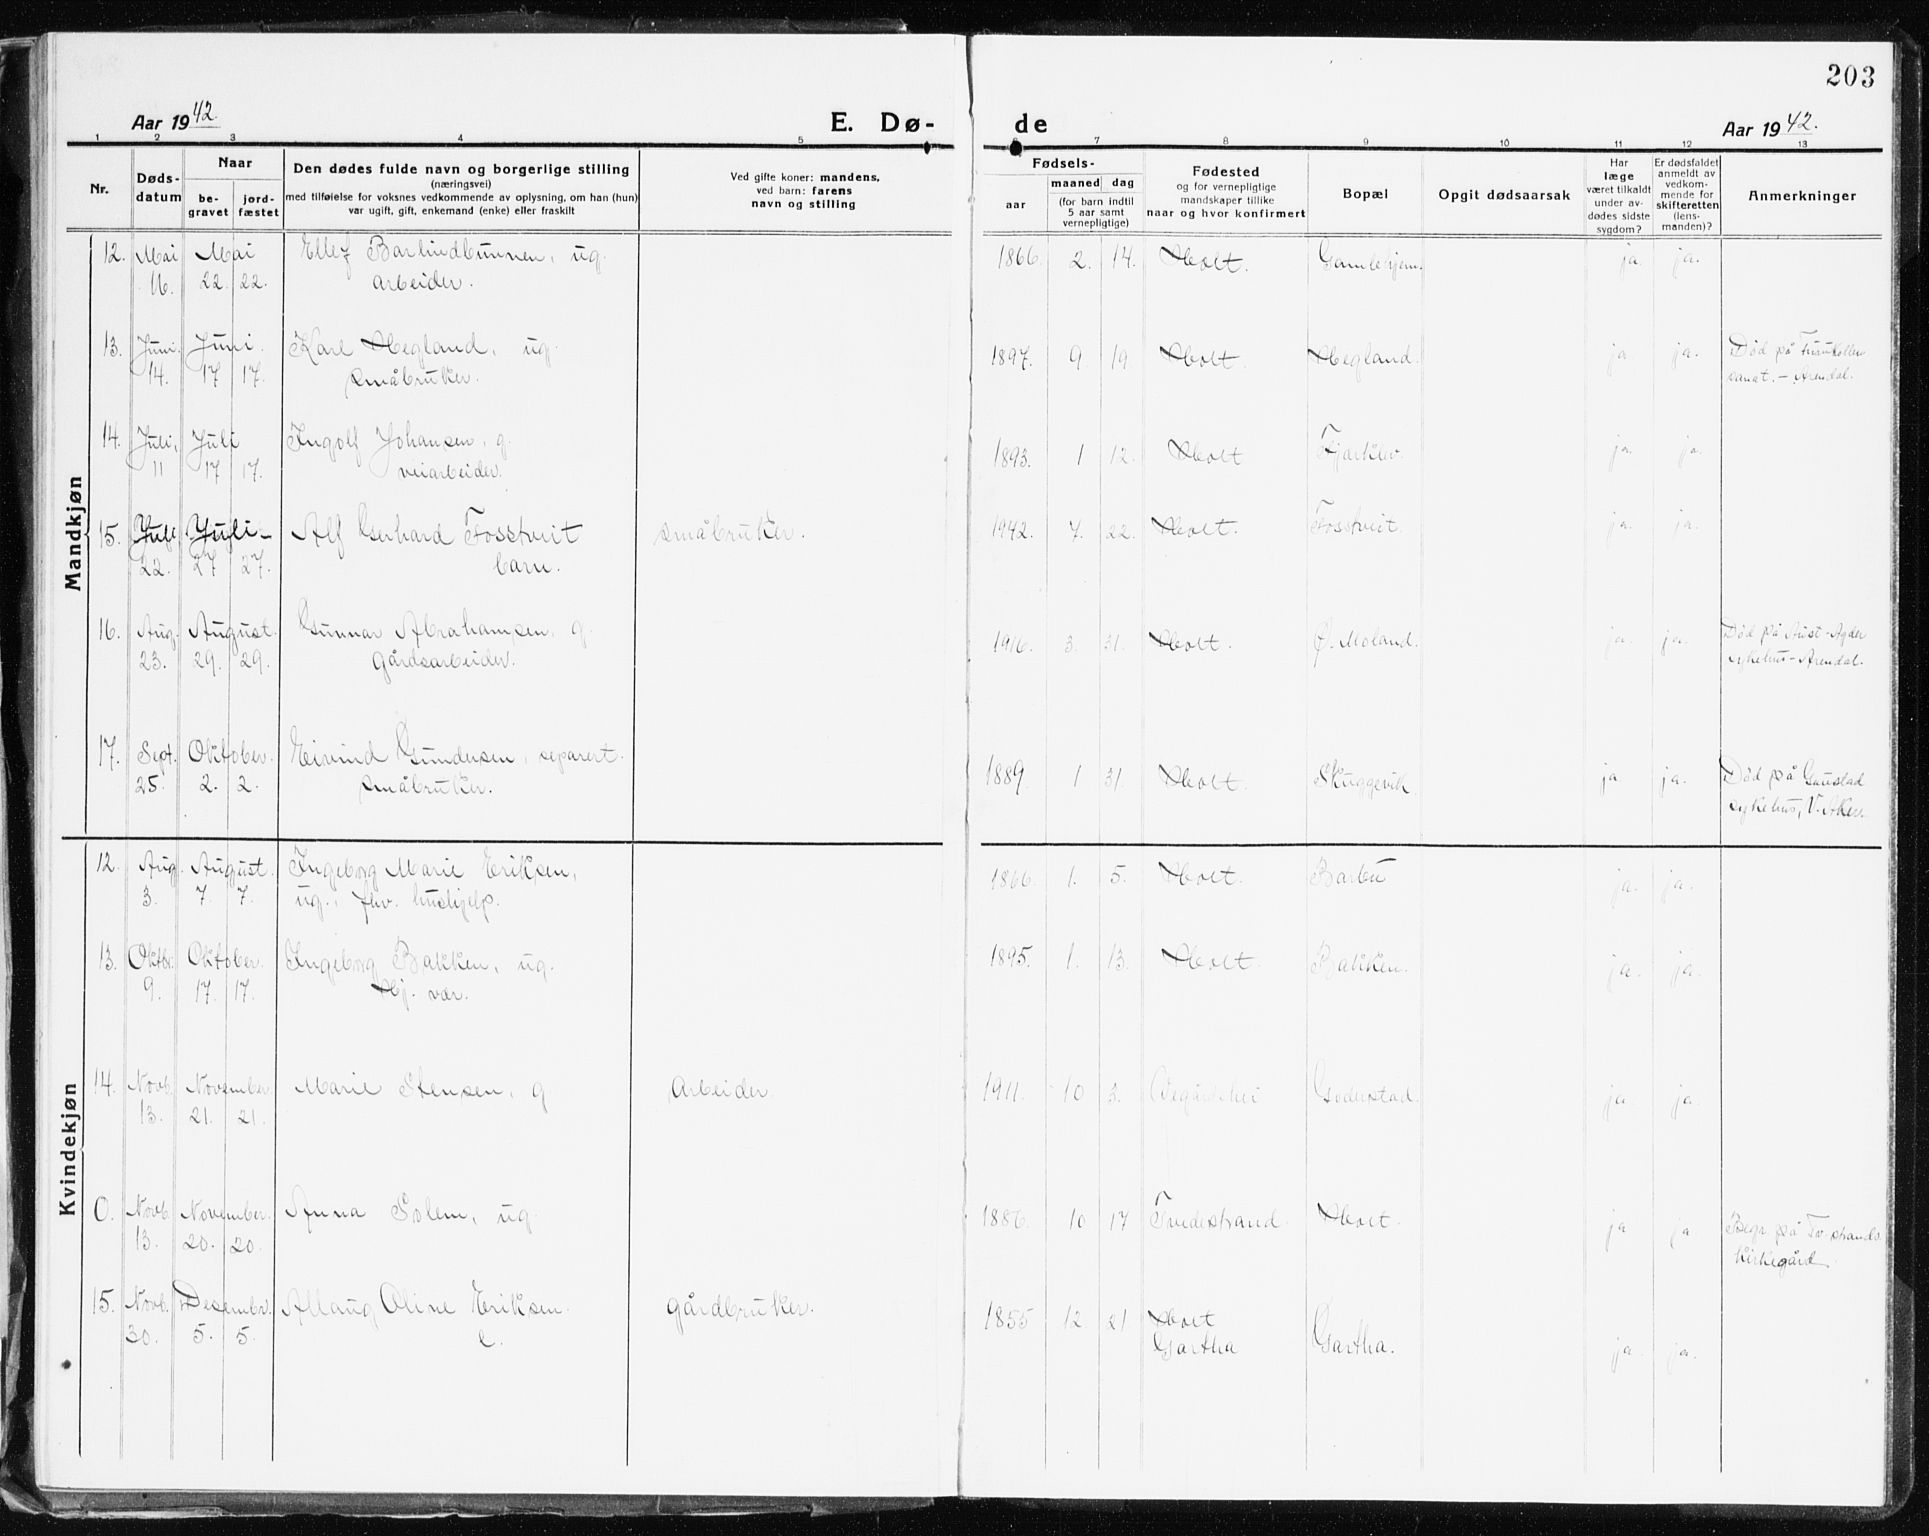 203
Aar 1942.
E. Dø-
de
Aar 1942.
1 2 3 4 5 6 7 8 9 10 11 12 13
Nr.
Døds-
datum
Naar
be-
gravet
jord-
fæstet
Den dødes fulde navn og borgerlige stilling
(næringsvei)
med tilføielse for voksnes vedkommende av oplysning, om han (hun)
var ugift, gift, enkemand (enke) eller fraskilt
Ved gifte koner: mandens,
ved barn: farens
navn og stilling
Fødsels-
aar
maaned dag
(for barn indtil
5 aar samt
vernepligtige)
Fødested
og for vernepligtige
mandskaper tillike
naar og hvor konfirmert
Bopæl
Opgit dødsaarsak
Har
læge
været tilkaldt
under av-
dødes sidste
sygdom?
Er dødsfaldet
anmeldt av
vedkom-
mende for
skifteretten
(lens-
manden)?
Anmerkninger
Mandkjøn
12. Mai Mai Ellef Barlindbunnen, ug. 1866. 2. 14. Holt. Gamlehjem. ja. ja.
16. 22. 22. arbeider.
13. Juni. Juni. Karl Hegland, ug. 1897. 9 19 Holt. Hegland. ja ja. Død på Furukollen
14. 17 17. småbruker. sanat. - Arendal.
14. Juli, Juli Ingolf Johansen, g. 1893. 1 12. Holt Fjærkleiv. ja. ja.
11 17 17. veiarbeider.
15. Juli Juli- Alf Gerhard Fosstveit småbruker. 1942. 7. 22. Holt. Fosstveit. ja. ja.
22. 27 27. barn.
16. Aug. August. Gunnar Abrahamsen, g. 1916. 3. 31. Holt. Ø. Moland. ja. ja. Død på Aust-Agder
23. 29. 29. gårdsarbeider. sykehus-Arendal.
17. Sept. Oktober. Eivind Gundersen, separert. 1889. 1 31. Holt. Skuggevik. ja ja. Død på Gaustad
25. 2. 2. småbruker. sykehus, V. Aker.
Kvindekjøn
12. Aug. August. Ingeborg Marie Eriksen, 1866. 1. 5. Holt. Barbu ja. ja.
3. 7. 7. ug., fhv. hushjelp.
13. Oktbr. Oktober. Ingeborg Bakken, ug. 1895. 1. 13. Holt. Bakken. ja. ja.
9. 17. 17. Hj. vær.
14. Novb. November Marie Stensen, g arbeider. 1911. 10 3. Vegårdshei Goderstad. ja. ja.
13. 21. 21.
0. Novb. November. Anna Solem, ug. 1886. 10 17 Tvedestrand. Holt. ja ja. Begr. på Tv-strands
13. 20. 20. kirkegård.
15. Novb. Desembr. Allaug Oline Eriksen. gårdbruker. 1855 12 21 Holt Gartha. ja. ja.
30. 5. 5. e. Gartha